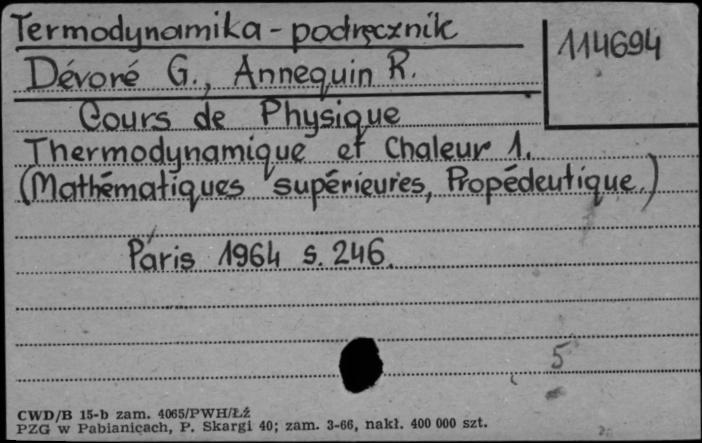 Termodynamika - podręcznik
114694
Dévoré G., Annequin R.
Cours de Physique
Thermodynamique et Chaleur 1.
(Mathématiques supérieures, Propédeutique.)
Páris 1964 s. 246.
5
CWD/B 15-b zam. 4065/PWH/Łź
PZG w Pabianicach, P. Skargi 40; zam. 3-66, nakł. 400 000 szt.